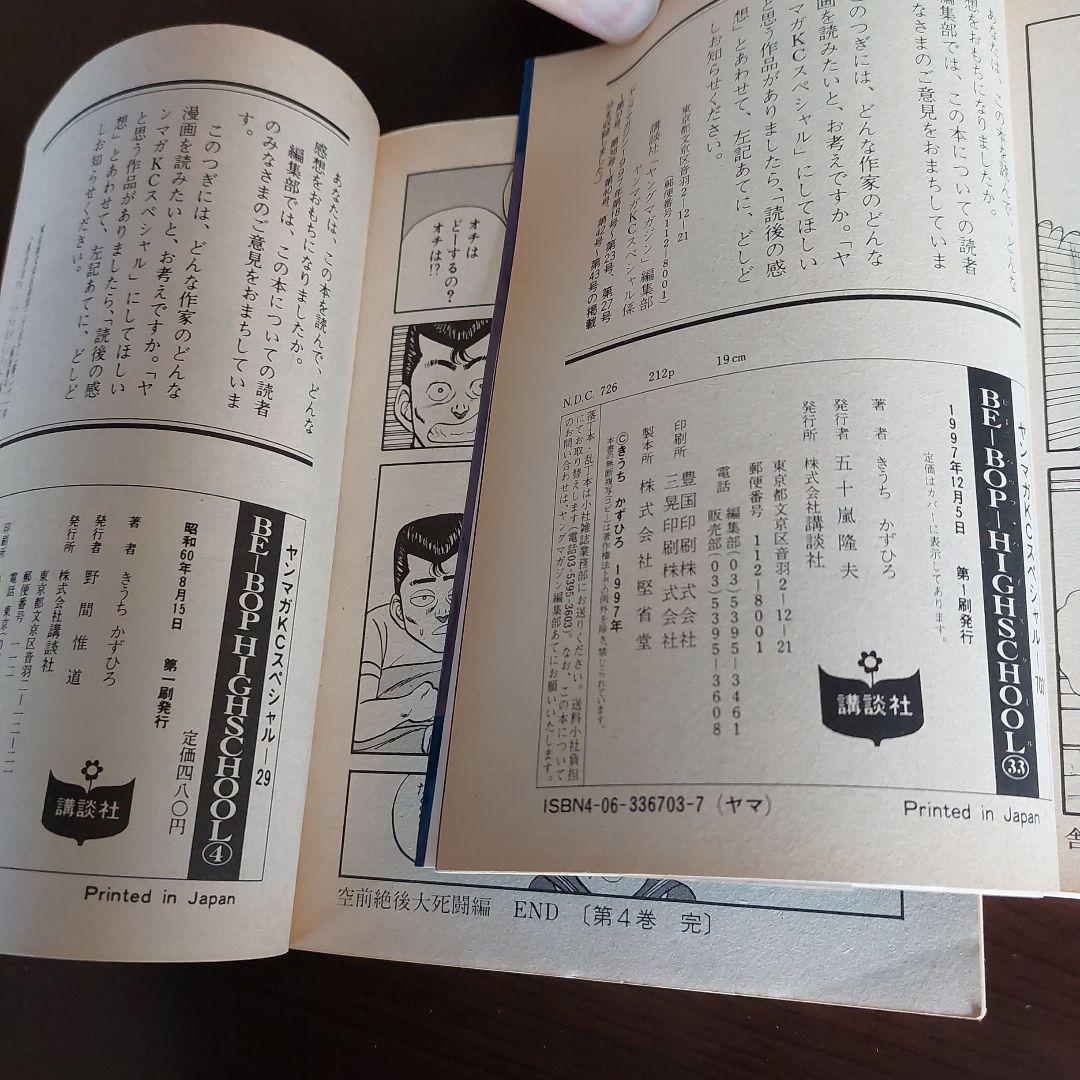 あなたは、この本を読んで、どんな
感想をおもちになりましたか。
編集部では、この本についての読者
のみなさまのご意見をおまちしていま
す。
このつぎには、どんな作家のどんな
漫画を読みたいと、お考えですか。「ヤ
ンマガKCスペシャル」にしてほしい
と思う作品がありましたら、「読後の感
想」とあわせて、左記あてに、どしど
しお知らせください。
ヤンマガKCスペシャル—29
BE-BOP HIGHSCHOOL④
昭和60年8月15日 第一刷発行
定価四八〇円
著者 きうち かずひろ
発行者 野間惟道
発行所 株式会社講談社
東京都文京区音羽二-一二-二一
郵便番号 一一二
電話 東京(0
印刷所
講談社
Printed in Japan
オチは
どーするの?
オチは!?
空前絶後大死闘編 END 〔第4巻 完〕
あなたは、この本を読んで、どんな
感想をおもちになりましたか。
編集部では、この本についての読者
みなさまのご意見をおまちしていま
このつぎには、どんな作家のどんな
画を読みたいと、お考えですか。「ヤ
マガKCスペシャル」にしてほしい
と思う作品がありましたら、「読後の感
想」とあわせて、左記あてに、どしど
しお知らせください。
東京都文京区音羽2-12-21
(郵便番号112-8001)
講談社「ヤングマガジン」編集部
ヤンマガKCスペシャル係
N.D.C. 726 212p 19cm
ヤンマガKCスペシャル—702
BE-BOP-HIGHSCHOOL㉝
1997年12月5日 第1刷発行
定価はカバーに表示してあります。
著者 きうち かずひろ
発行者 五十嵐隆夫
発行所 株式会社講談社
東京都文京区音羽2-12-21
郵便番号 112-8001
電話 編集部(03)5395-3461
販売部(03)5395-3608
印刷所 豊国印刷株式会社
三晃印刷株式会社
製本所 株式会社堅省堂
©きうち かずひろ 1997年
本書の無断複写(コピー)は著作権法上での例外を除き、禁じられています。
落丁本・乱丁本は小社雑誌業務部にお送りください。送料小社負担
にてお取り替えします(電話03-5395-3603)。なお、この本について
のお問い合わせは、ヤングマガジン編集部あてにお願いいたします。
講談社
ISBN4-06-336703-7 (ヤマ)
Printed in Japan